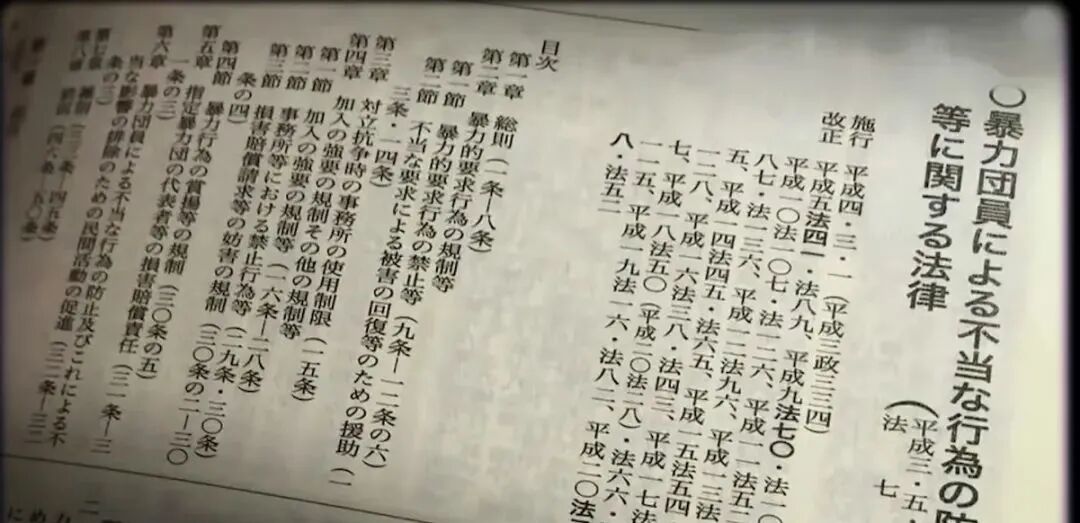 ○暴力団員による不当な行為の防
等に関する法律
(平成三・五・
法 七
施行 平成四・三・一(平成三政三三四)
改正 平成五法四一・法八九、平成九法七〇・法一〇
八七・法一三六、平成一二法九六、平成一三法
五、平成一四法四五・法六五、平成一五法五四
一二八、平成一六法三八・法四三、平成一七法
七、平成一八法五〇(平成二〇法二八)・法六六・
一一五、平成一九法一六・法八二、平成二〇法
八・法五二
目次
第一章 総則(一条―八条)
第二章 暴力的要求行為の規制等
第一節 暴力的要求行為の禁止等(九条―一二条の六)
第二節 不当な要求による被害の回復等のための援助(一
三条・一四条)
第三章 対立抗争時の事務所の使用制限(一五条)
第四章 加入の強要の規制その他の規制等
第一節 加入の強要の規制等(一六条―二八条)
第二節 事務所等における禁止行為等(二九条・三〇条)
第三節 損害賠償請求等の妨害の規制(三〇条の二―三〇
条の四)
第四節 暴力行為の賞揚等の規制(三〇条の五)
第五章 指定暴力団の代表者等の損害賠償責任(三一条―三
一条の三)
第六章 暴力団員による不当な行為の防止及びこれによる不
当な影響の排除のための民間活動の促進(三二条―三二
条の三)
第七章 雑則(三三条―四五条)
第八章 罰則(四六条―五〇条)